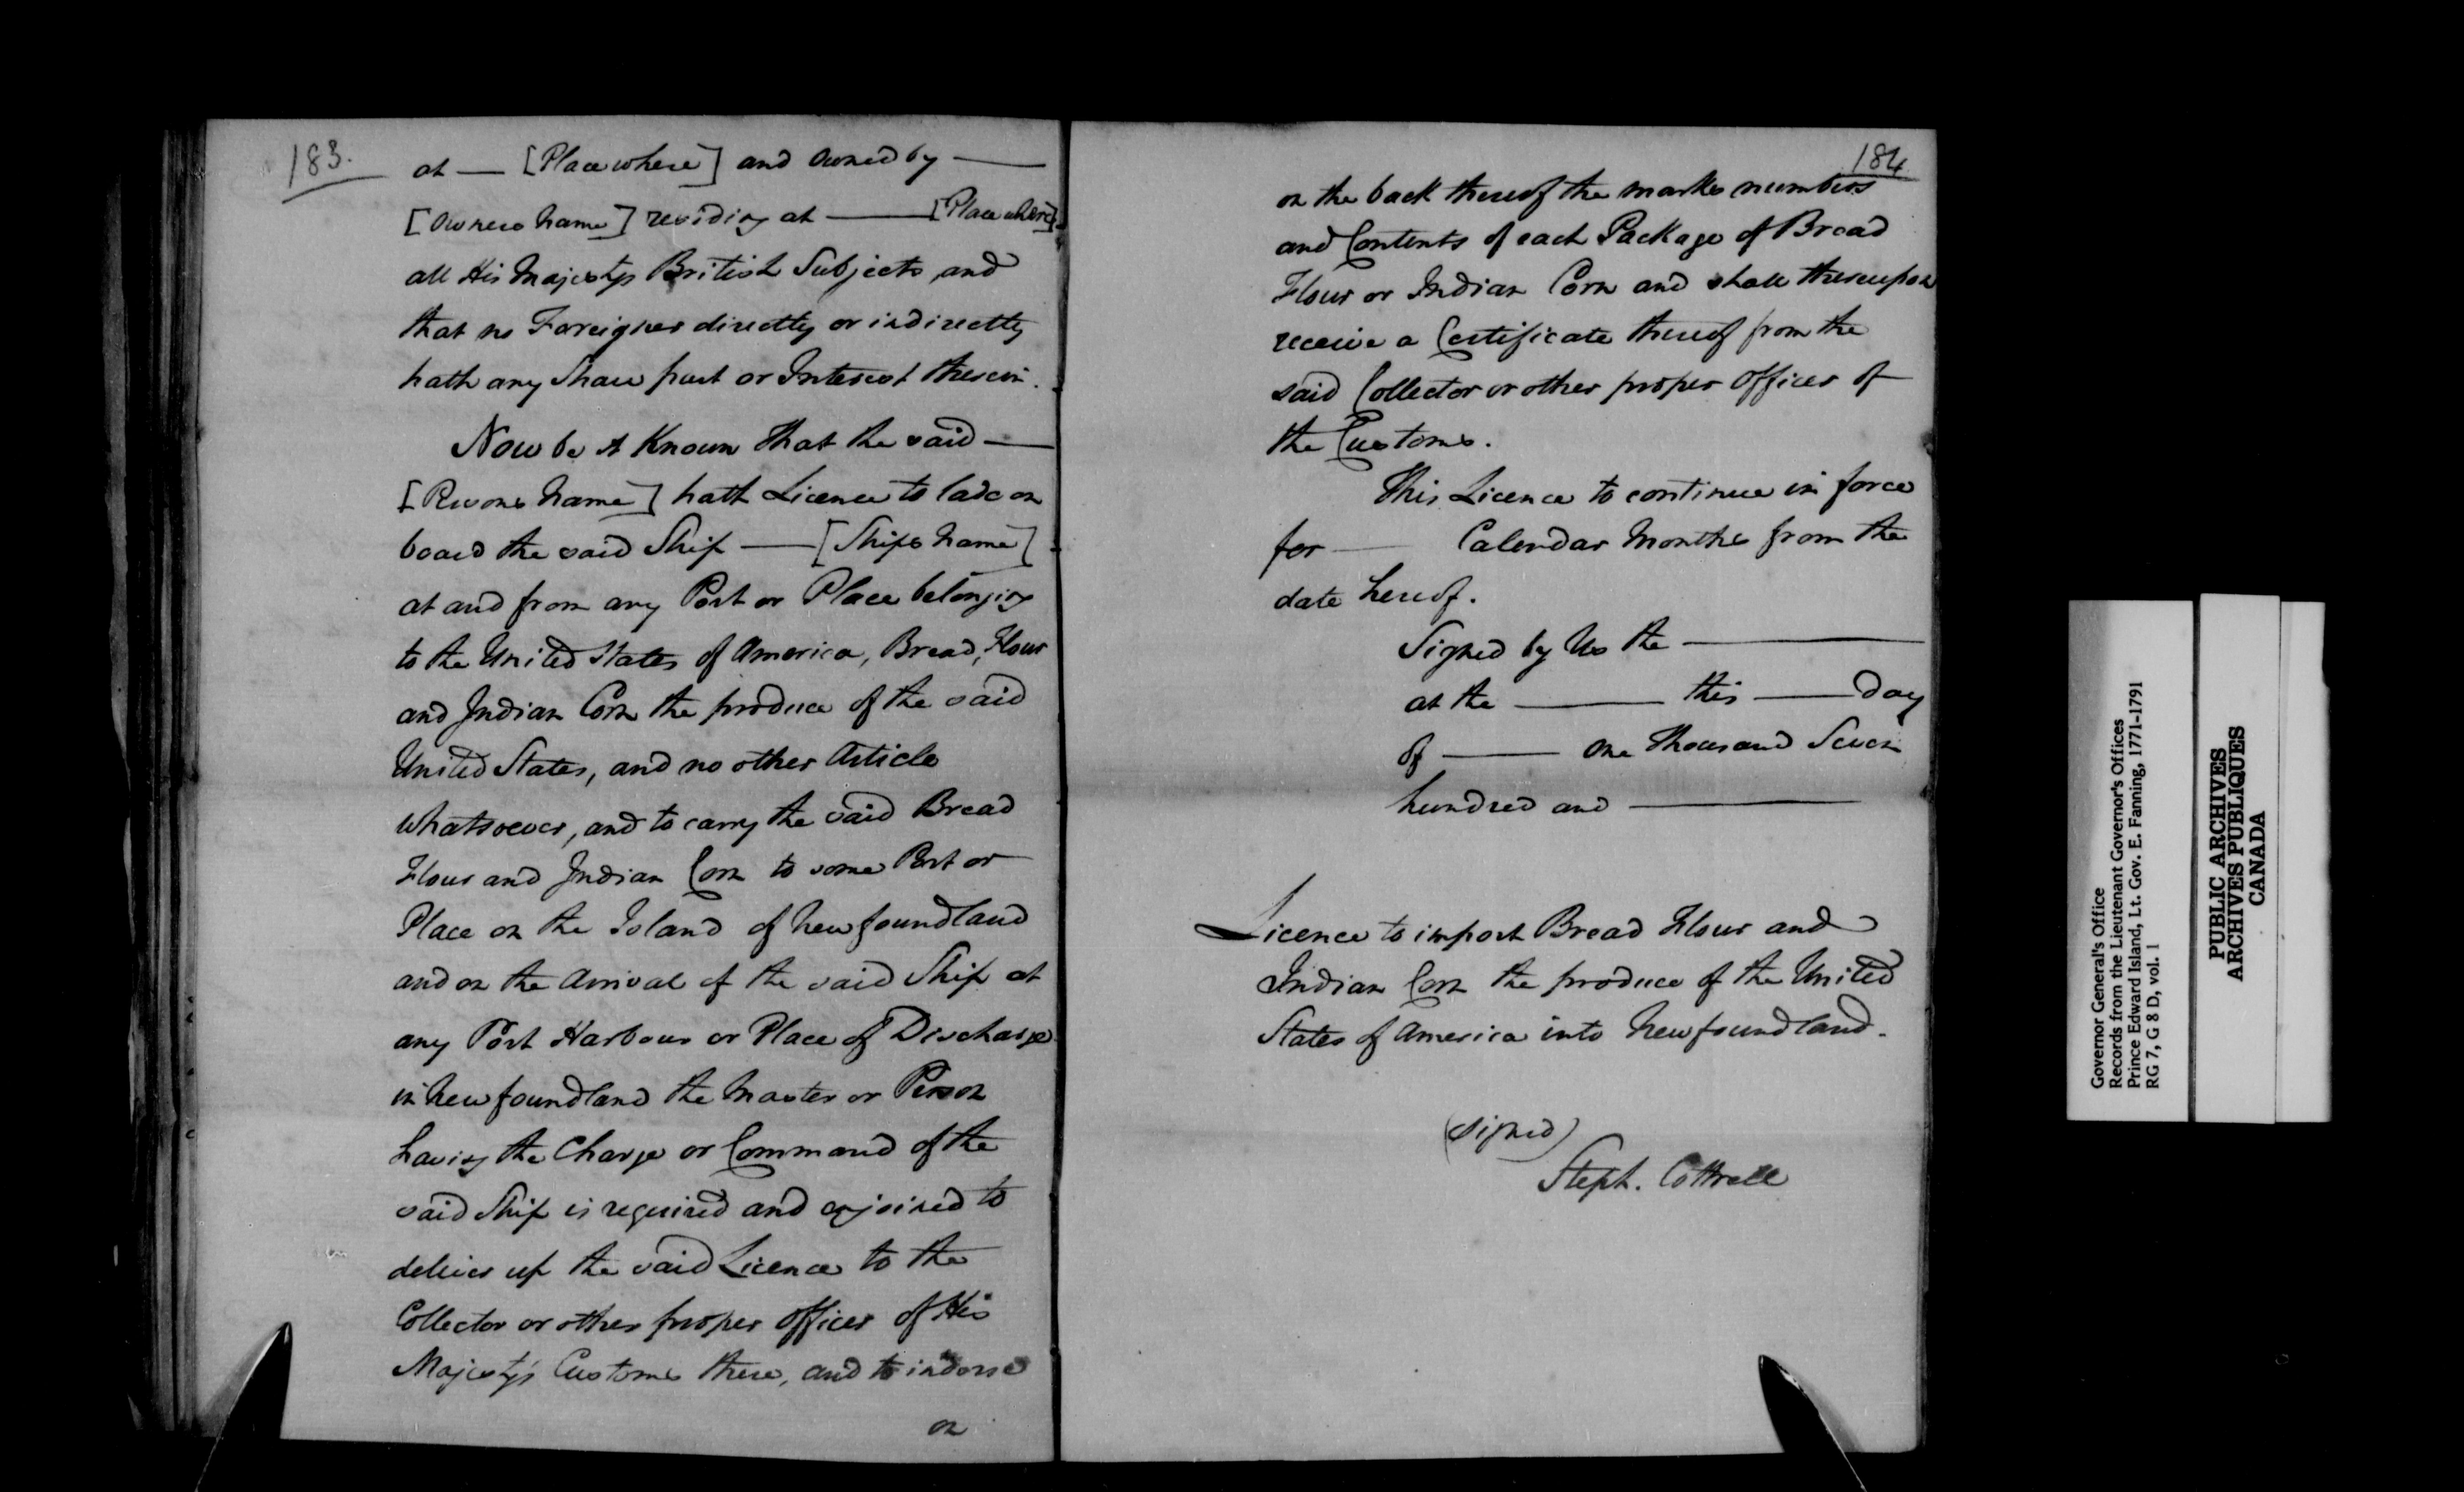 183.
at — [Place where] and Owned by —
[Owners Name] residing at — [Place where]
all His Majestys British Subjects, and
that no Foreigner directly or indirectly
hath any Share part or Interest therein.
Now be it Known That the said —
[Persons Name] hath Licence to lade on
board the said Ship — [Ships Name]
at and from any Port or Place belonging
to the United States of America, Bread, Flour
and Indian Corn the produce of the said
United States, and no other Article
whatsoever, and to carry the said Bread
Flour and Indian Corn to some Port or
Place on the Island of Newfoundland
and on the Arrival of the said Ship at
any Port Harbour or Place of Discharge
in Newfoundland the Master or Person
having the Charge or Command of the
said Ship is required and enjoined to
deliver up the said Licence to the
Collector or other proper Officer of His
Majesty's Customs there, and to indorse
on
184
on the back thereof the marks numbers
and Contents of each Package of Bread
Flour or Indian Corn and shall thereupon
receive a Certificate thereof from the
said Collector or other proper Officer of
the Customs.
This Licence to continue in force
for — Calendar Months from the
date hereof.
Signed by Us the —
at the — this — day
of — One Thousand Seven
hundred and —
Licence to import Bread Flour and
Indian Corn the produce of the United
States of America into Newfoundland.
(signed)
Steph. Cottrell
Governor General's Office
Records from the Lieutenant Governor's Offices
Prince Edward Island, Lt. Gov. E. Fanning, 1771-1791
RG 7, G 8 D, vol. 1
PUBLIC ARCHIVES
ARCHIVES PUBLIQUES
CANADA